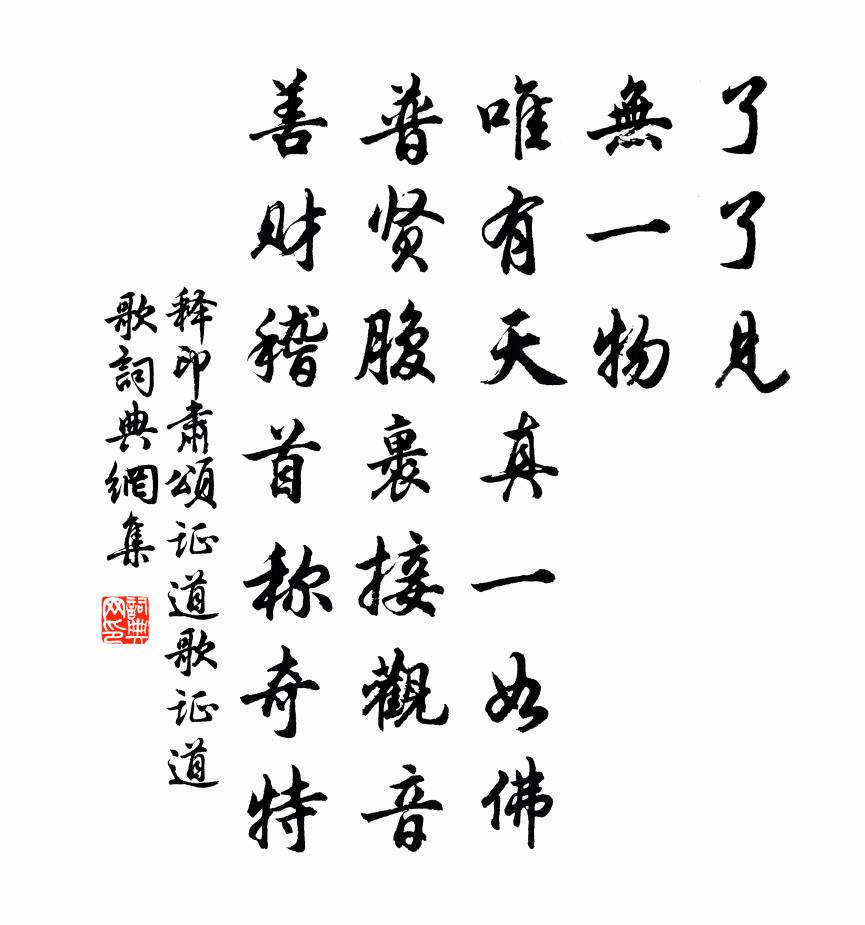 了了見
無一物
唯有天真一如佛
普贤腹裹接觀音
善财稽首称奇特
释印肅頌证道歌证道
歌詞典網集
詞典
网印